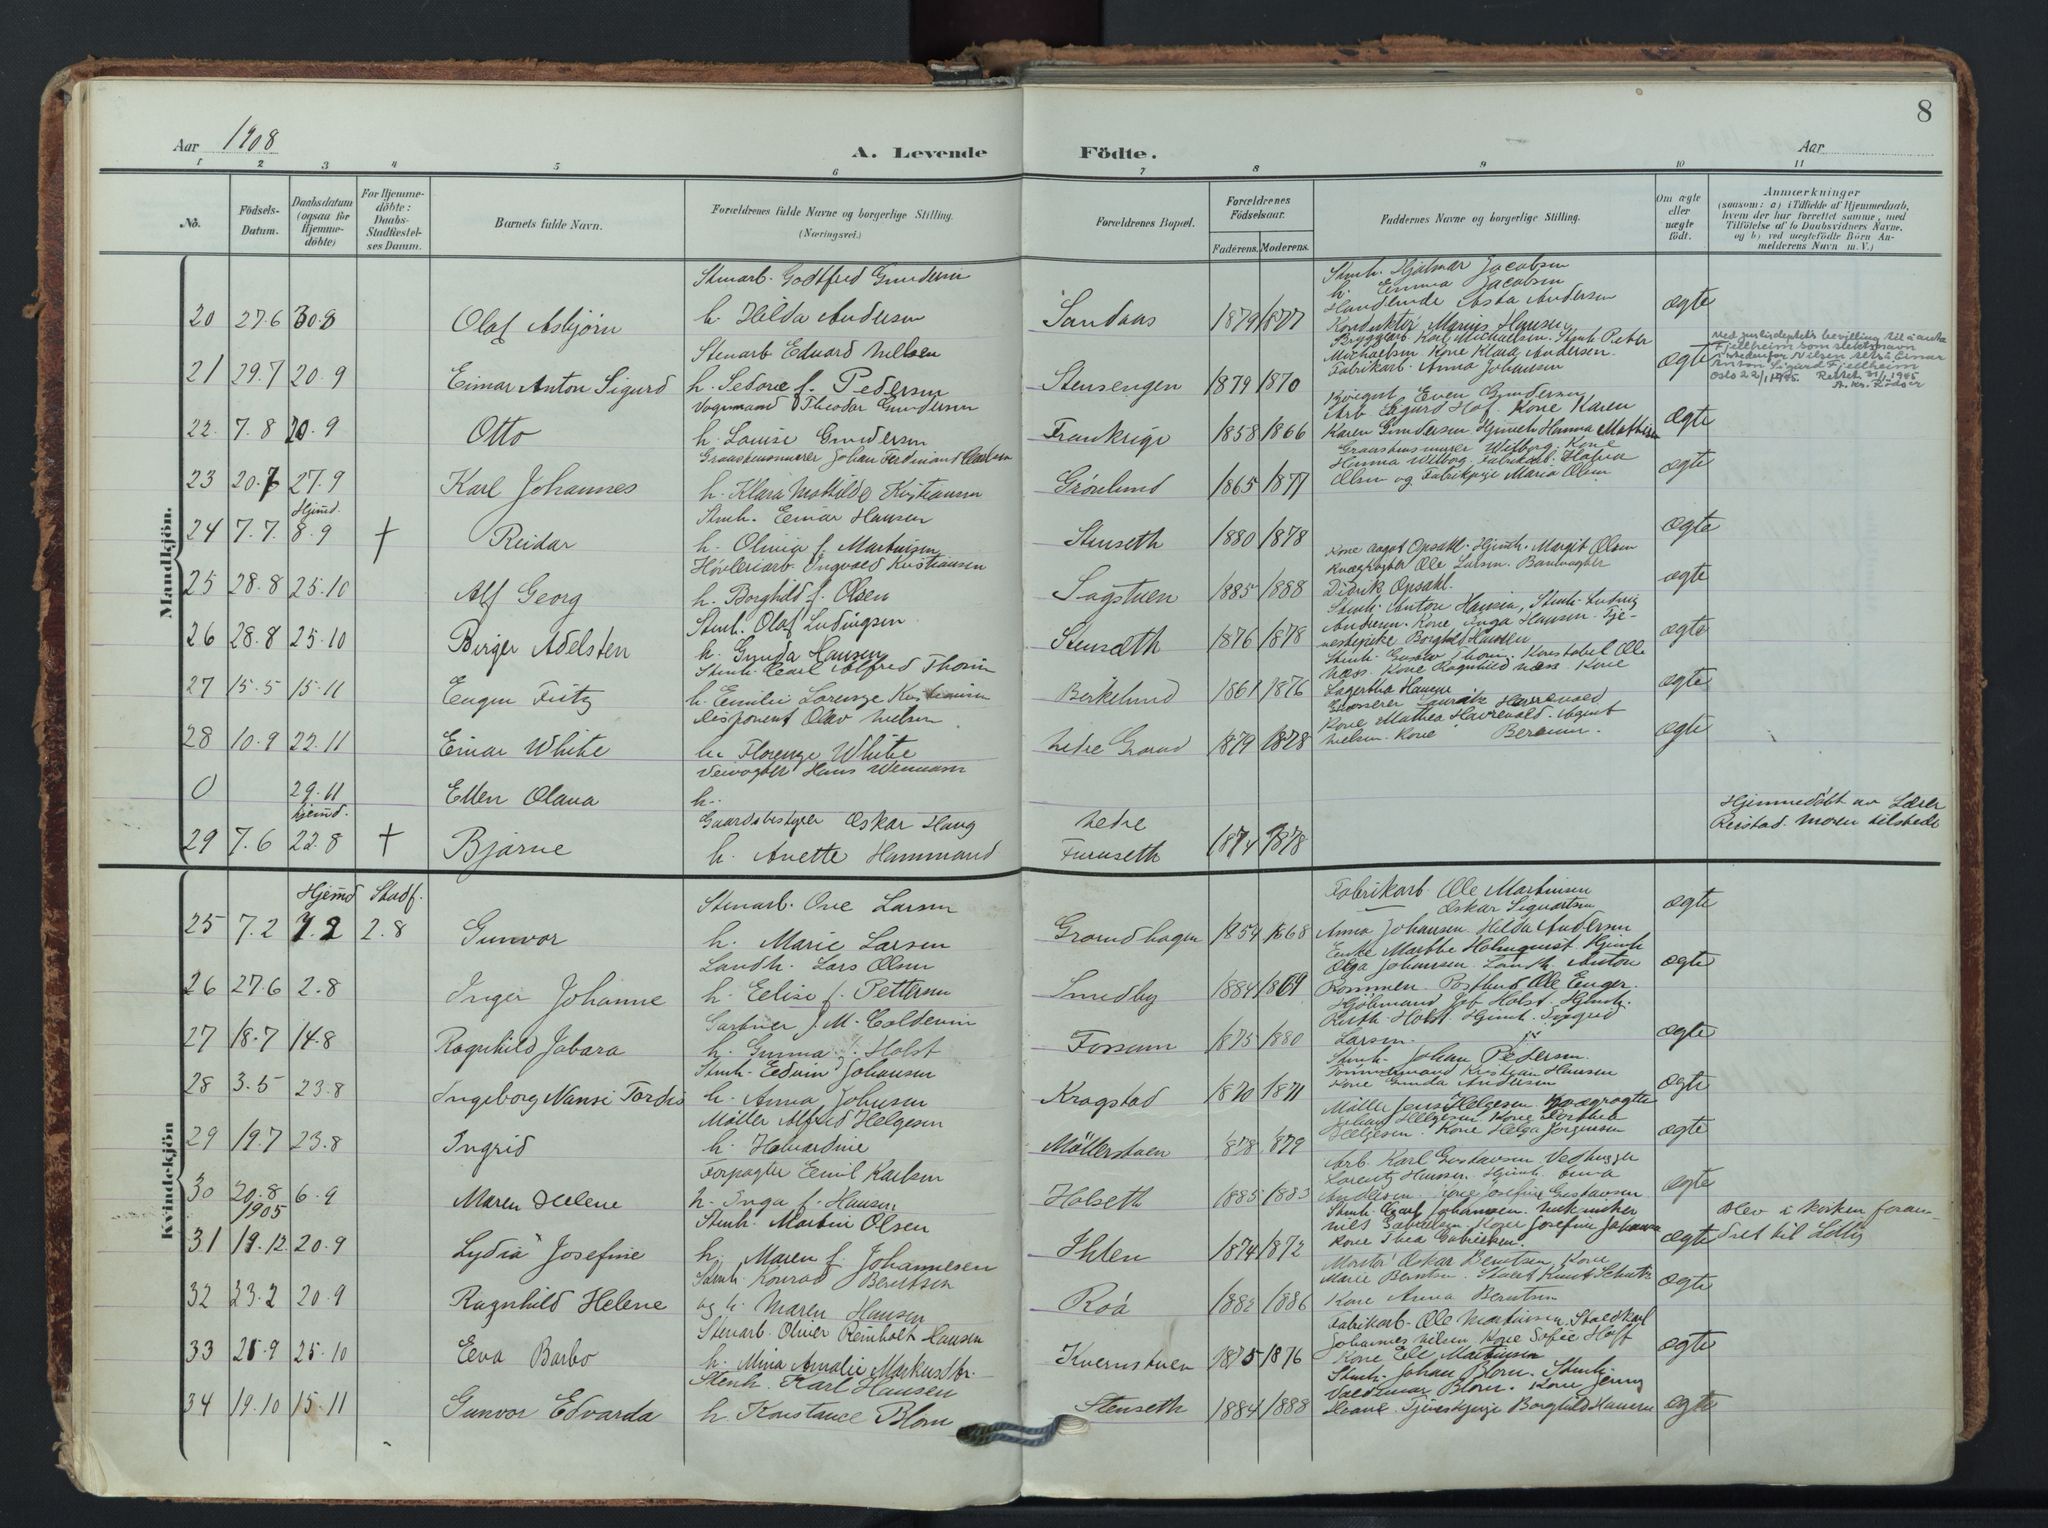 8
Aar 1908
A. Levende
Födte.
Aar
1 2 3 4 5 6 7 8 9 10 11
No.
Födsels-Datum.
Daabsdatum (ogsaa for Hjemmedöbte)
For Hjemmedöbte: Daabs-Stadfæstelses Datum.
Barnets fulde Navn.
Forældrenes fulde Navne og borgerlige Stilling. (Næringsvei.)
Forældrenes Bopæl.
Forældrenes Födselsaar.
Faderens. Moderens.
Faddernes Navne og borgerlige Stilling.
Om ægte eller uægte födt.
Anmærkninger
(saasom: a) i Tilfælde af Hjemmedaab, hvem der har forrettet samme, med Tilföielse af to Daabsvidners Navne, og b) ved uægtefödte Börn Anmelderens Navn m. V.)
Mandkjön.
Stenarb. Godtfred Gundersen
Stenh. Hjalmar Jacobsen
h. Emma Jacobsen
20 27.6 30.8 Olaf Asbjörn h. Hilda Andersen Sandaas 1879 1877 Handlende Asta Andersen ægte
Konduktör Marius Hansen
Stenarb Edvard Nilsen
Bryggearb Karl Michaelsen. Stenh Peter
21 29.7 20.9 Einar Anton Sigurd h. Sedore f. Pedersen Stensengen 1879 1870 Michaelsen Kone Klara Andersen. ægte
Fabrikarb. Anna Johansen
Med justisdeptets bevilling til å anta
Fjellheim som slektsnavn
istedenfor Nilsen Einar
Anton Sigurd Fjellheim
Oslo 22/1 1945. Rettet 31/1 1945
Vognmand Theodor Gundersen
Even Gundersen
22. 7.8 20.9 Otto h. Louise Gundersen Frankrige 1858 1866 Arb Sigurd Hof. Kone Karen ægte
Karen Gundersen Hjmvh Hanna Mathisen
Graastensmurer Johan Ferdinand Carlsen
Graastensmurer Wilborg. Kone
23 20.7 27.9 Karl Johannes h. Klara Mathilde Kristiansen Grönlund 1865 1877 Hanna Wilborg. Fabrikarb. ægte
Olsen og Fabrikpige Maria Olsen
Hjemd. Stenh. Einar Hansen
24 7.7. 8.9 † Reidar h. Olivia f. Martinisen Stenseth 1880 1878 ægte
Høvleriarb. Ingvald Kristiansen
Kone Aagot Opsahl. Hjmvh. Margit Olsen
25 28.8 25.10 Alf Georg h. Borghild f. Olsen Sagstuen 1885 1888 Ole Larsen. Banevogter ægte
Didrik Opsahl.
Stenh. Olaf Ludvigsen
Stenh. Anton Hansen, Stenh. Ludvig
26 28.8 25.10 Birger Adelsten h. Gunda Hansen Stenseth 1876 1878 Andersen. Kone Inga Hansen. Tje- ægte
nestepike Borghild Hansen
Stenh. Carl Alfred Thorin
Stenh. Gustav Thorn. Konstabel Ole
27 15.5 15.11 Eugen Fritz h. Emilie Lorenze Kristiansen Berkelund 1861 1876 Næss. Kone Ragnhild Næss Kone ægte
Lagertha Hansen
Disponent Olav Nielsen
Grosserer Laurits Havrevold
28 10.9 22.11 Einar White h. Florenze White Nedre Grorud 1879 1878 Kone Mathea Havrevold. Agent ægte
Nielsen. Kone Bereuner.
Veivogter Hans Wennam
0 29.11 Ellen Olava h.
hjemd. Gaardsbestyrer Oskar Haug Nedre
29 7.6 22.8 † Bjarne h. Anette Hammand Furuseth 1874 1878
Hjemmedöbt av Lærer
Reistad. Moren tilstede
Kvindekjön
Hjemd Stadf. Stenarb. Ove Larsen
Fabrikarb. Ole Martinisen
Oskar Siguartsen
25 7.2 7.2 2.8 Gunvor h. Marie Larsen Grorudhagen 1854 1868 Anna Johansen. Hilda Andersen ægte
Landh. Lars Olsen
Enke Marthe Holmquist Hjmvh
26 27.6 2.8 Inger Johanne h. Eelise f. Pettersen Smedby 1884 1869 Olga Johansen. Landh Anton ægte
Rommen. Postbud Ole Enger.
Gartner J. M. Coldevin
Hjölmand Job Holst. Hjmvh.
27 18.7 14.8 Ragnhild Jabara h. Gunna f. Holst Fossum 1875 1880 Ruth Holst Hjmvh. Sigrid ægte
Larsen
Stenh. Edvin Johansen
Stenh. Johan Pedersen.
28 3.5 23.8 Ingeborg Nansi Tordis h. Anna Johnsen Krogstad 1870 1871 Tömmermand Kristian Hansen ægte
Kone Gunda Andersen
Möller Alfred Helgesen
Möller Jens Helgesen
29 19.7 23.8 Ingrid h. Halvardine Möllerstuen 1878 1879 Johan Helgesen Kone Dorthea ægte
Helgesen. Kone Helga Jorgensen
Forpagter Emil Karlsen
Arb. Karl Gustavsen Vedhugger
30 20.8 6.9 Maren Helene h. Inga f. Hansen Holseth 1885 1883 Lorentz Hansen. Hjmvh. ægte
Andersen. Kone Josefine Gustavsen
1905 Stenh. Martin Olsen
Stenh. Carl Johansen.
31 19.12 20.9 Lydia Josefine h. Maren f. Johannesen Ihlen 1874 1872 Nils Gabrielsen Kone Josefine Johansen ægte
Kone Thea Gabrielsen.
Blev i kirken foran-
dret til Lilly
Stenh. Konrad Berntsen
Oskar Berntsen Kone
32 23.2 20.9 Ragnhild Helene og h. Maren Hansen Roå 1882 1886 Marie Berntsen. Knut Schultz ægte
Kone Anna Berntsen
Stenarb. Oliver Reinholt Hansen
Fabrikarb. Ole Martinsen. Staldkarl
33 21.9 25.10 Eeva Barbo h. Mina Amalie Markusdtr. Kvernstuen 1875 1876 Johannes Nilsen Kone Sofie Hoff ægte
Kone Martinsen
Stenh. Karl Hansen
Stenh. Johan Blom. Stenh.
34 19.10 15.11 Gunvor Edvarda h. Konstance Blom Stenseth 1884 1888 Valdemar Blom. Kone Jenny ægte
Tjenestepige Borghild Hansen